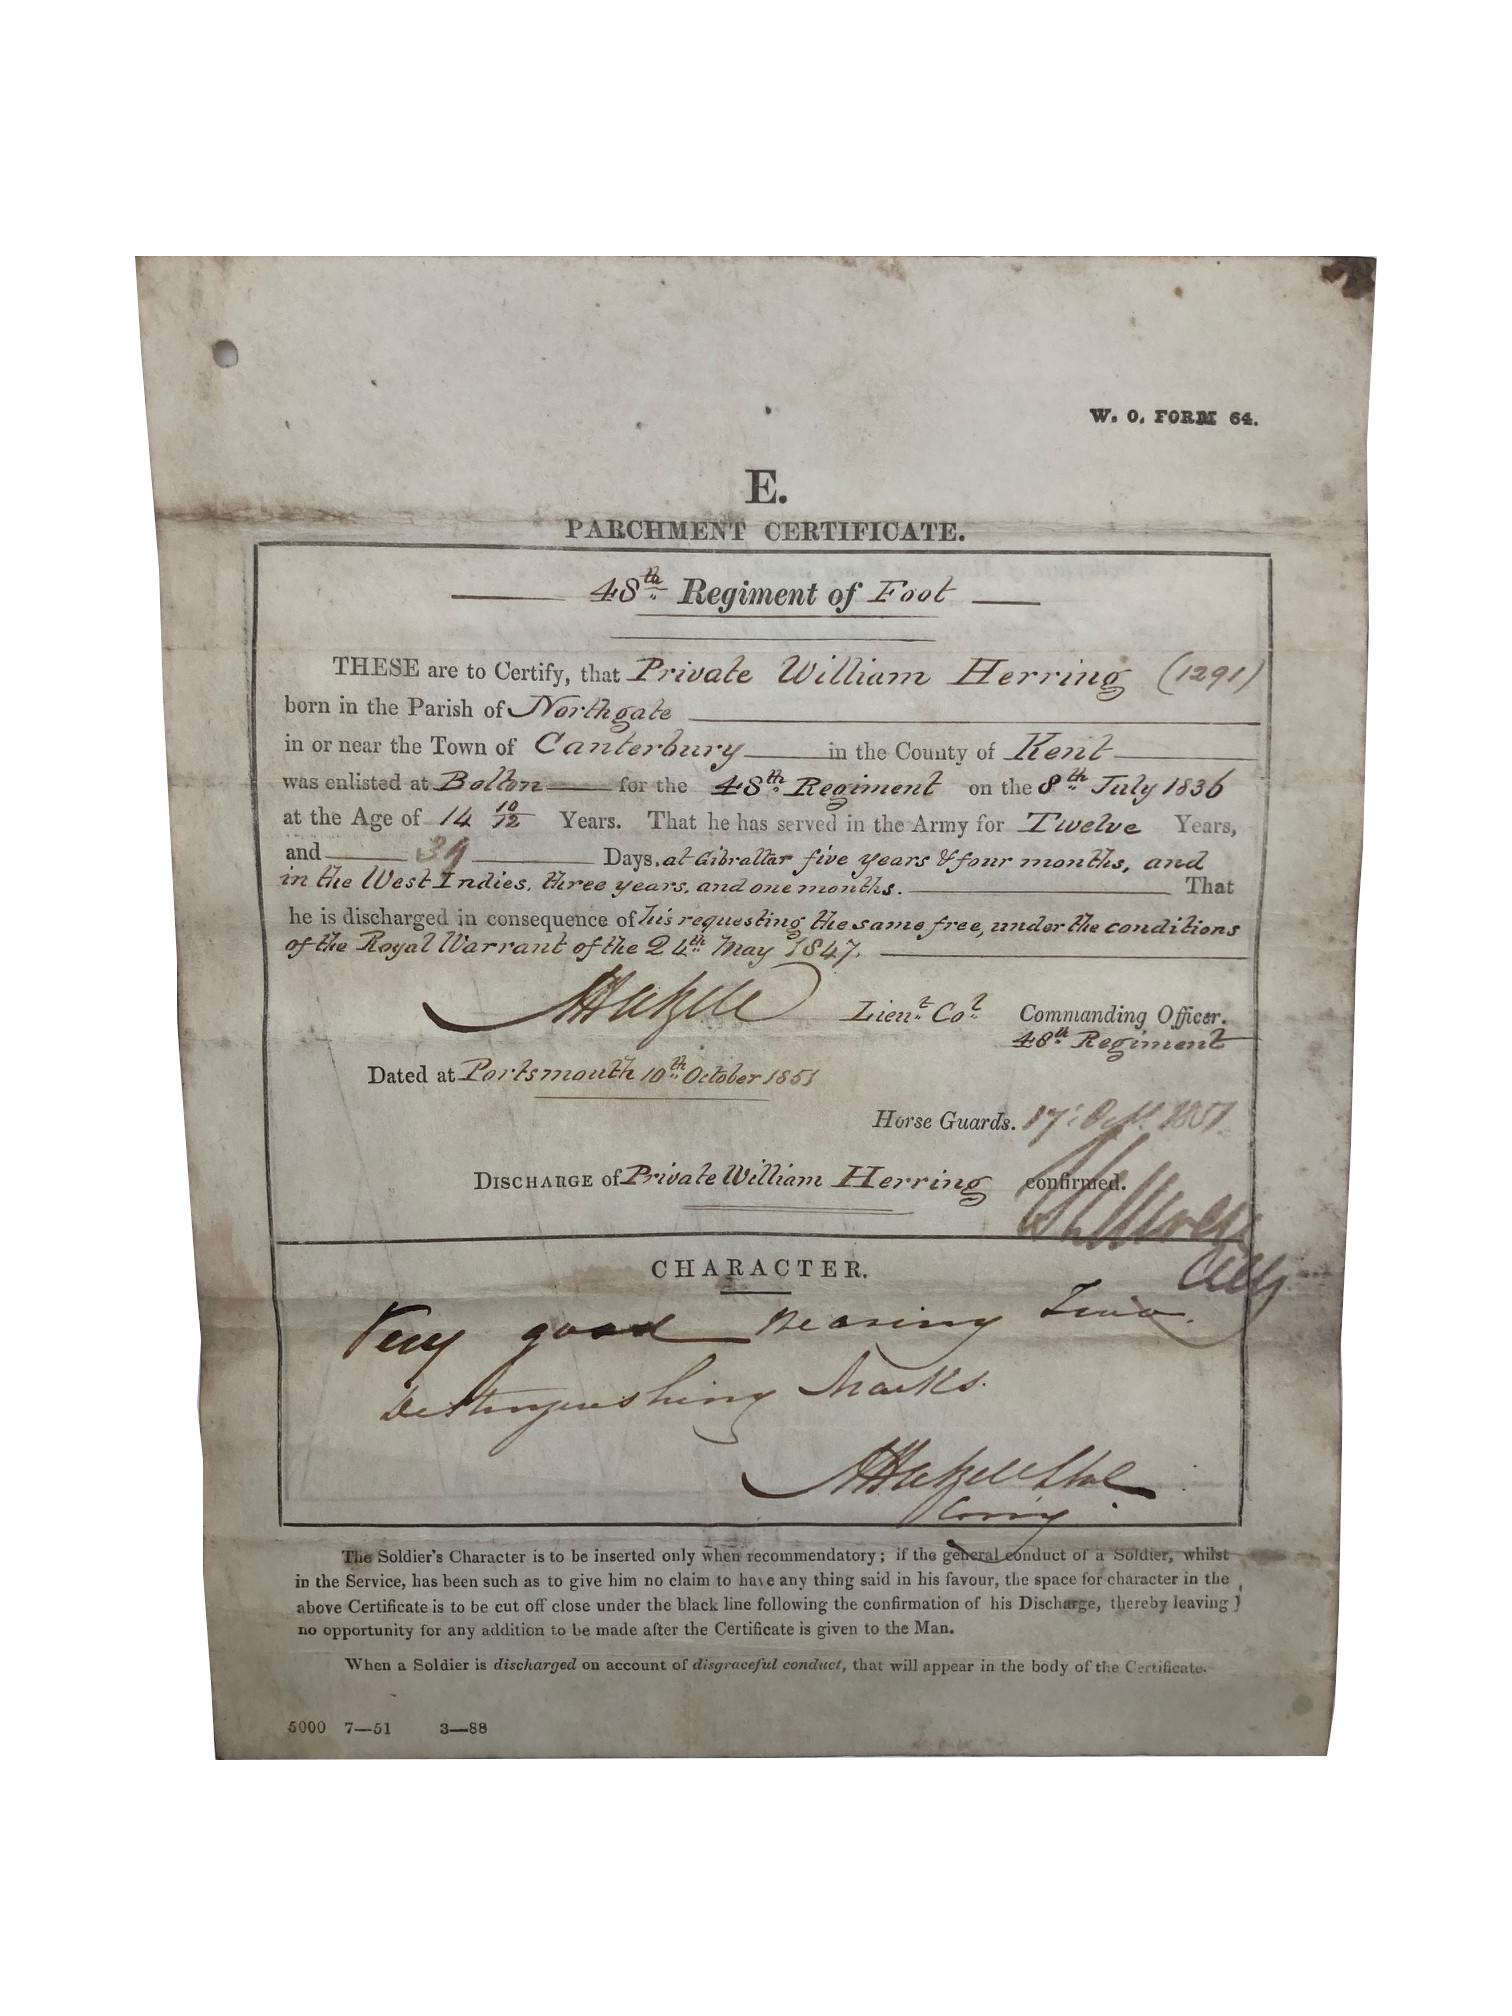 W. O. FORM 64.
E.
PARCHMENT CERTIFICATE.
48th Regiment of Foot
THESE are to Certify, that Private William Herring (1291)
born in the Parish of Northgate
in or near the Town of Canterbury in the County of Kent
was enlisted at Bolton for the 48th Regiment on the 8th July 1836
at the Age of 14 10/12 Years. That he has served in the Army for Twelve Years,
and 39 Days, at Gibraltar five years & four months, and
in the West Indies, three years, and one months. That
he is discharged in consequence of his requesting the same free, under the conditions
of the Royal Warrant of the 24th May 1847.
Lieut Col Commanding Officer.
48th Regiment
Dated at Portsmouth 10th October 1851
Horse Guards. 17 Oct. 1851.
DISCHARGE of Private William Herring confirmed.
CHARACTER.
Very good Bearing Two
Distinguishing Marks.
The Soldier's Character is to be inserted only when recommendatory; if the general conduct of a Soldier, whilst
in the Service, has been such as to give him no claim to have any thing said in his favour, the space for character in the
above Certificate is to be cut off close under the black line following the confirmation of his Discharge, thereby leaving
no opportunity for any addition to be made after the Certificate is given to the Man.
When a Soldier is discharged on account of disgraceful conduct, that will appear in the body of the Certificate.
5000 7—51 3—88